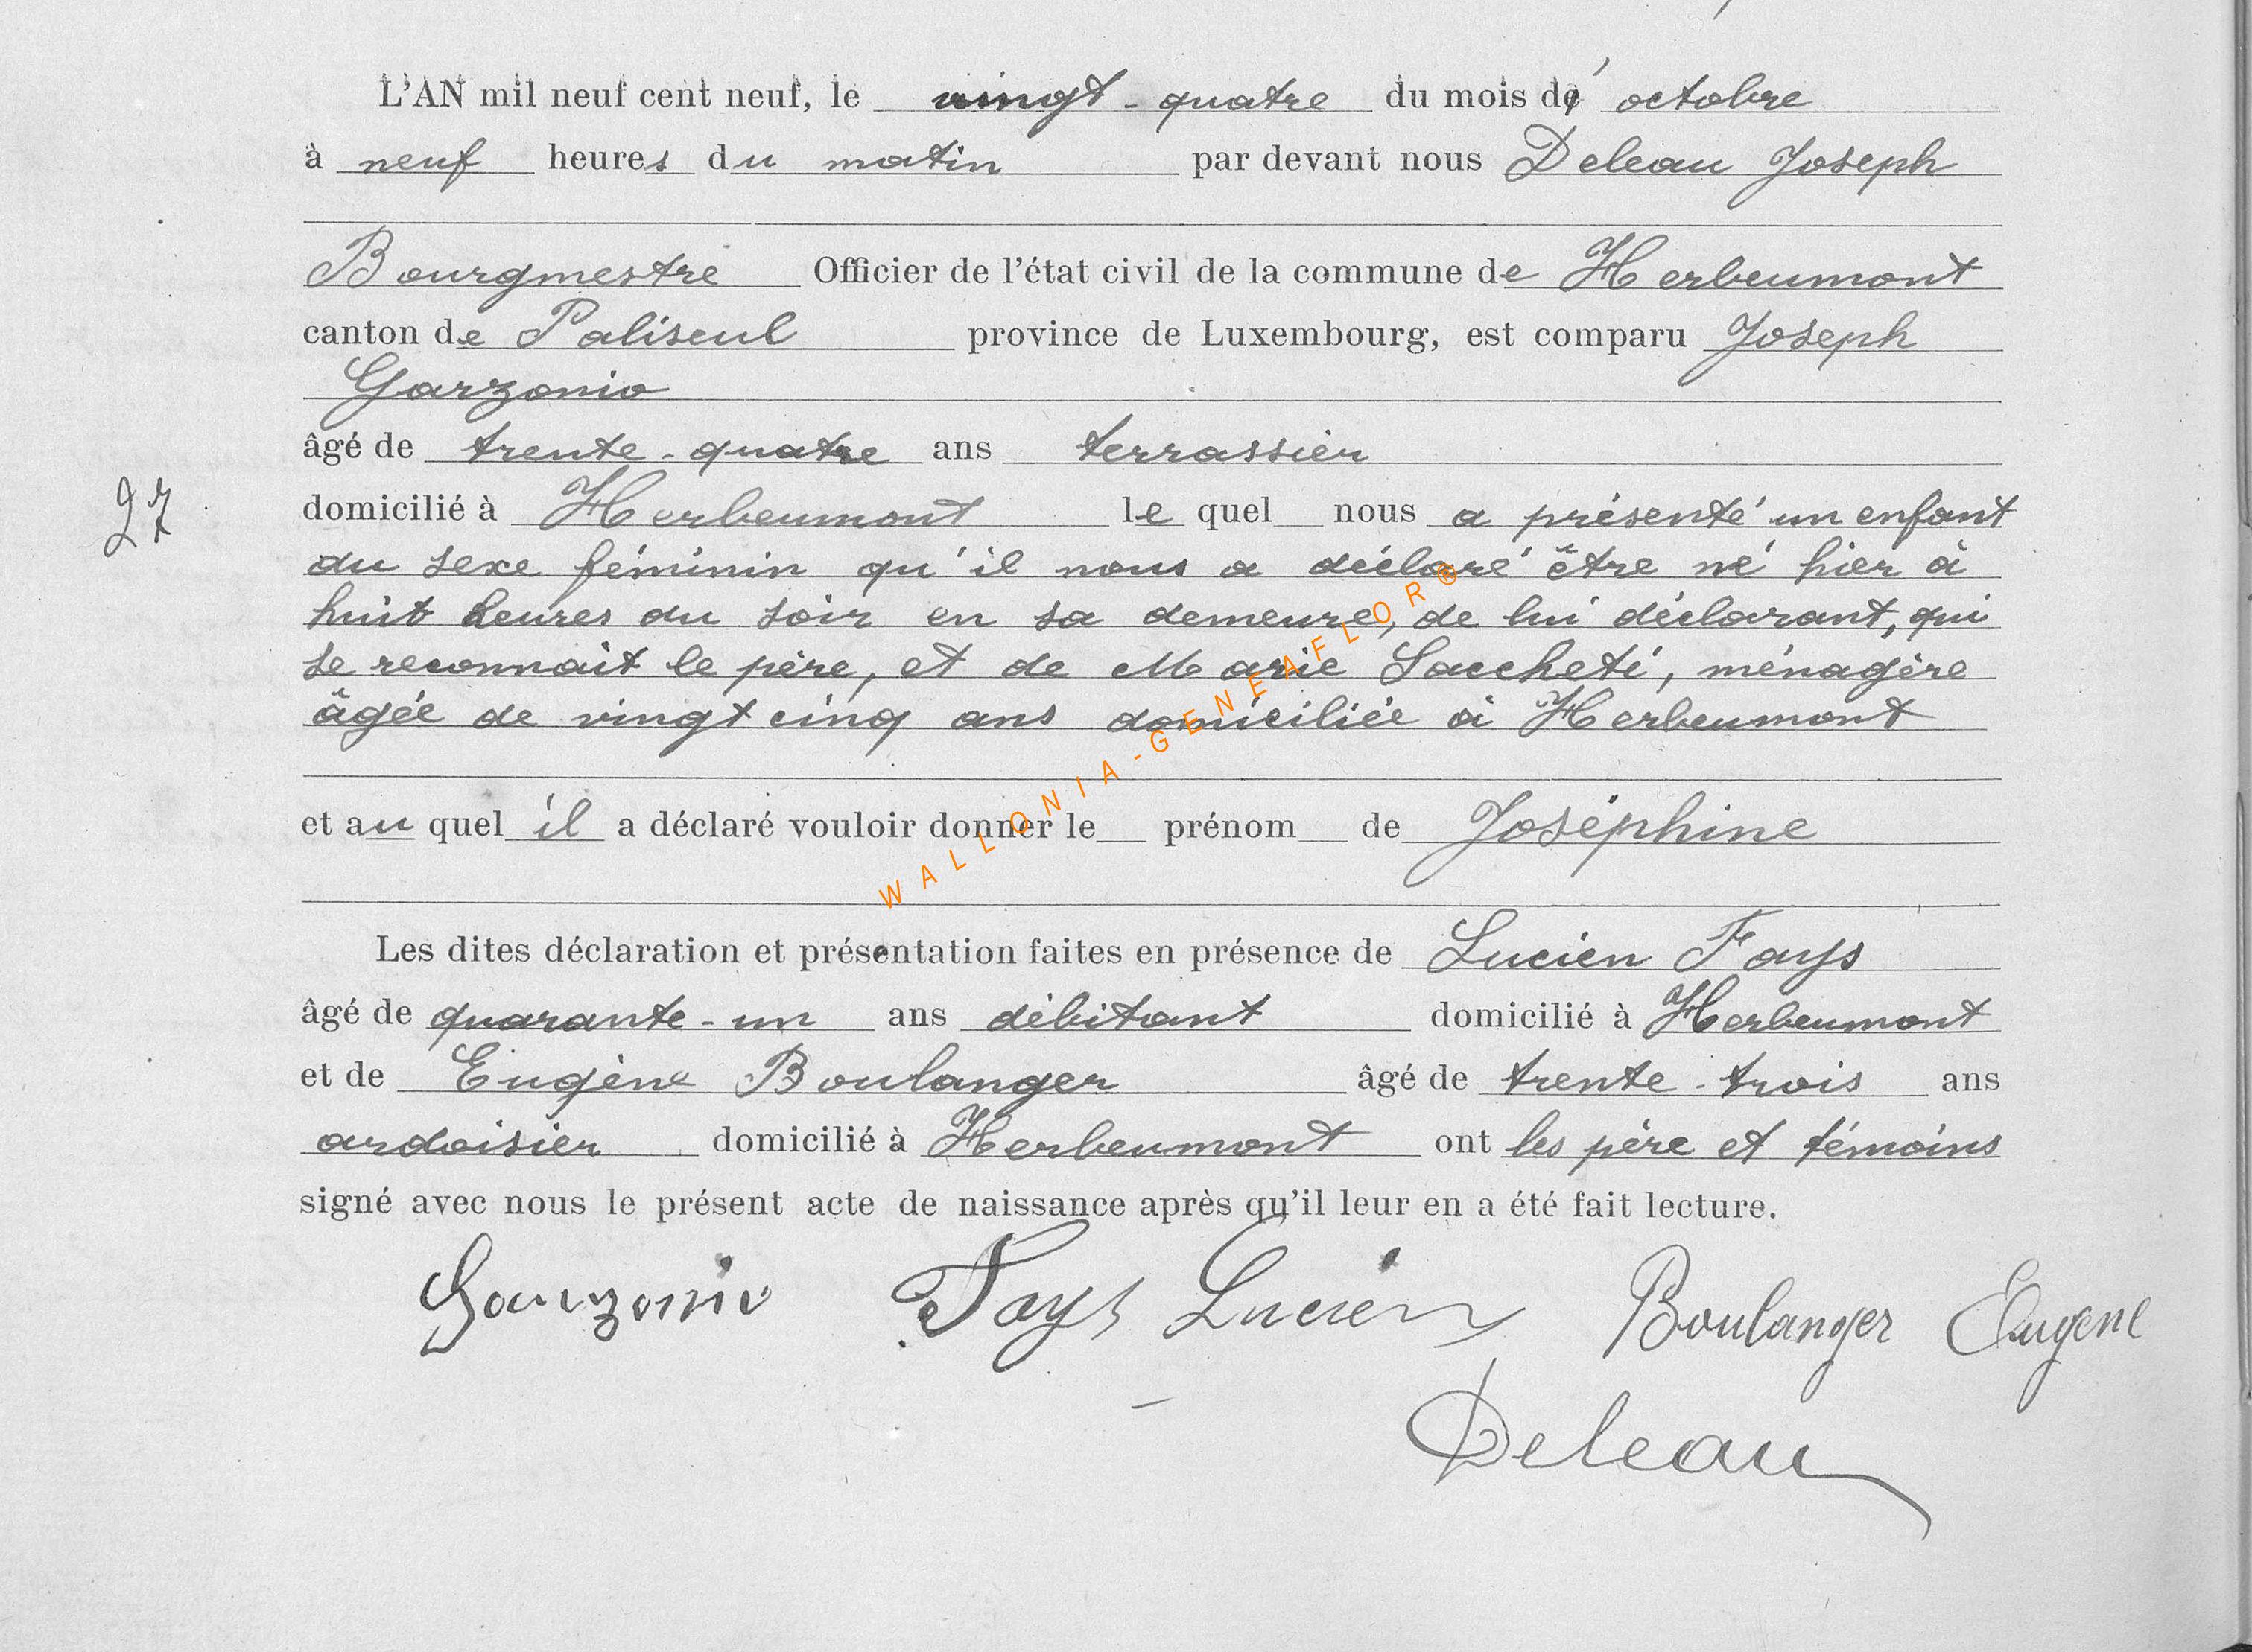 L'AN mil neuf cent neuf, le vingt-quatre du mois d' octobre
à neuf heures du matin par devant nous Deleau Joseph
Bourgmestre Officier de l'état civil de la commune de Herbeumont
canton de Paliseul province de Luxembourg, est comparu Joseph
Garzonio
âgé de trente-quatre ans terrassier
27
domicilié à Herbeumont le quel nous a présenté un enfant
du sexe féminin qu'il nous a déclaré être né hier à
huit heures du soir en sa demeure, de lui déclarant, qui
se reconnait le père, et de Marie Saccheti, ménagère
âgée de vingt cinq ans domiciliée à Herbeumont
et au quel il a déclaré vouloir donner le prénom de Joséphine
WALLONIA-GENEAFLOR®
Les dites déclaration et présentation faites en présence de Lucien Fays
âgé de quarante-un ans débitant domicilié à Herbeumont
et de Eugène Boulanger âgé de trente-trois ans
ardoisier domicilié à Herbeumont ont les père et témoins
signé avec nous le présent acte de naissance après qu'il leur en a été fait lecture.
Garzonio Fays Lucien Boulanger Eugene
Deleau